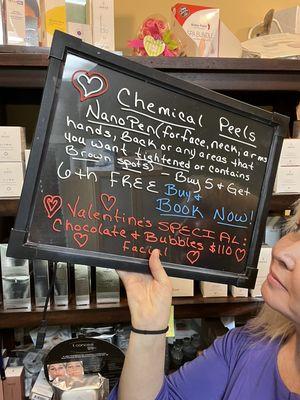 SPA BUNDLE
Chemical Peels
NanoPen (for face, neck, arms
hands, Back or any areas that
you want tightened or contains
Brown spots) - Buy 5 & Get
6th FREE Buy &
Book Now!
Valentine's SPECIAL:
Chocolate & Bubbles $110
Facial
iconceal